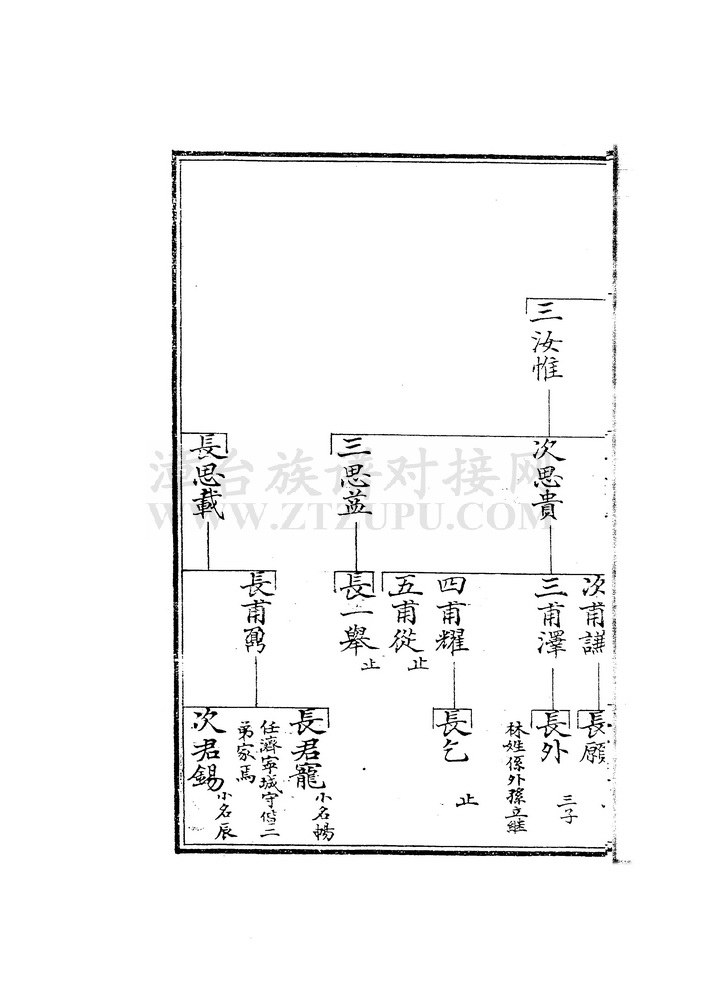 三汝惟
次思貴
三思益
長思載
次甫謙
三甫澤
四甫耀
五甫從
止
長一舉
止
長甫勇
長願
長外
三子
林姓係外孫立継
長乞
止
長君寵
小名暢
任濟寜城守偕二
弟家焉
次君錫
小名辰
漳台族谱对接网
WWW.ZTZUPU.COM